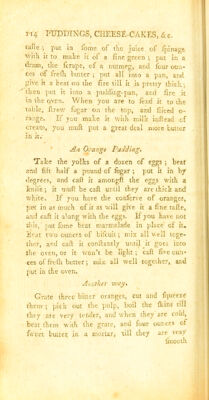 114 PUDDINGS, CHEESE-CAKES, &c.
taste; put in some of the juice of spinage
with it to make it of a fine green; put in a
dram, the scrape, of a nutmeg, and four oun-
ces of fresh butter; put all into a pan, and
give it a heat on the fire till it is pretty thick;
then put it into a pudding-pan, and fire it
in the oven. When you are to send it to the
table, strew sugar on the top, and sliced o-
range. If you make it with milk instead of
cream, you must put a great deal more butter
in it.
An Orange Pudding.
Take the yolks of a dozen of eggs; beat
and sift half a pound of sugar; put it in by
degrees, and cast it amongst the eggs with a
knife; it must be cast until they are thick and
white. If you have the conserve of oranges,
put in as much of it as will give it a fine taste,
and cast it along with the eggs. If you have not
this, put some beat marmalade in place of it.
Beat two ounces of biscuit; mix all well toge-
ther, and cast it constantly until it goes into
the oven, or it won't be light; cast five oun-
ces of fresh butter; mix all well together, and
put in the oven.
Another way.
Grate three bitter oranges, cut and squeeze
them; pick out the pulp, boil the skins till
they are very tender, and when they are cold,
beat them with the grate, and four ounces of
sweet butter in a mortar, till they are very
smooth